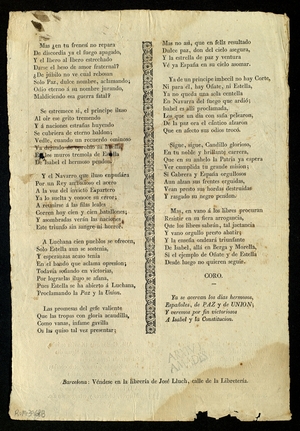 Mas ¿en tu frenesí no repara
De discordia ya el fuego apagado,
Y el Ibero al Ibero estrechado
Darse el beso de amor fraternal?
¿De júbilo no ve cual rebosan
Solo Paz, dulce nombre, aclamando;
Odio eterno á su nombre jurando,
Maldiciendo esa guerra fatal?
Se estremece si, el príncipe iluso
Al oir ese grito tremendo
Y á naciones estrañas huyendo
Se cubriera de eterno baldon;
Vedle, cuando un recuerdo ominoso
Ya dejando
muros tremola de Estella
De Isabel el hermoso pendon.
Y el Navarro que iluso empuñára
Por un Rey
el acero
A la voz del invicto Espartero
Ya lo suelta y conoce su error;
A reunirse á las filas leales
Corren hoy cien y cien batallones;
Y asombradas verán las naciones
Este triunfo sin sangre ni horror.
A Luchana cien pueblos se ofrecen,
Solo Estella aun se sostenia,
Y esperanzas acaso tenia
En el bando que aclama opresion;
Todavía soñando en victorias,
Por lograrlas iluso se afana,
Pues Estella se ha abierto á Luchana,
Proclamando la Paz y la Union.
Las proezas del gefe valiente
Que las tropas con gloria acaudilla,
Como vanas, infame gavilla
Oi las quiso tal vez presentar;
Mas no asi, que en feliz resultado
Dulce paz, don del cielo asegura,
Y la estrella de paz y ventura
Vé ya España en su cielo asomar.
Ya de un príncipe imbecil no hay Corte,
Ni para él, hay Oñate, ni Estella,
Ya no queda una sola centella
En Navarra del fuego que ardió;
Isabel es allí proclamada,
Los que un dia con saña pelearon,
De la paz era el cántico alzaron
Que en afecto sus odios trocó.
Sigue, sigue, Caudillo glorioso,
En tu noble y brillante carrera,
Que en su anhelo la Patria ya espera
Ver cumplida tu grande mision;
Si Cabrera y España orgullosos
Aun alzan sus frentes erguidas,
Vean pronto sus hordas destruidas
Y rasgado su negro pendon.
Mas, en vano los libres procuran
Resistir en su fiera arrogancia,
Que los libres sabrán, tal jactancia
Y vano orgullo pronto abatir;
Y la enseña ondeará triunfante
De Isabel, allá en Berga y Morella,
Si el ejemplo de Oñate y de Estella
Desde luego no quieren seguir.
CORO.
Ya se acercan los dias hermosos,
Españoles, de PAZ y de UNION;
Y veremos por fin victoriosos
A Isabel y la Constitucion.
Barcelona: Véndese en la librería de José Lluch, calle de la Libretería.